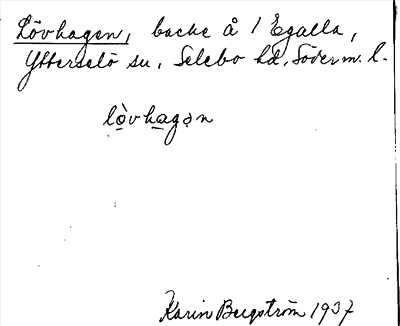 Lövhagen, backe å 1 Egalla,
Ytterselö sn, Selebo hd, Söderm. l.
lò̱vha̱gən
Karin Bergström 1937